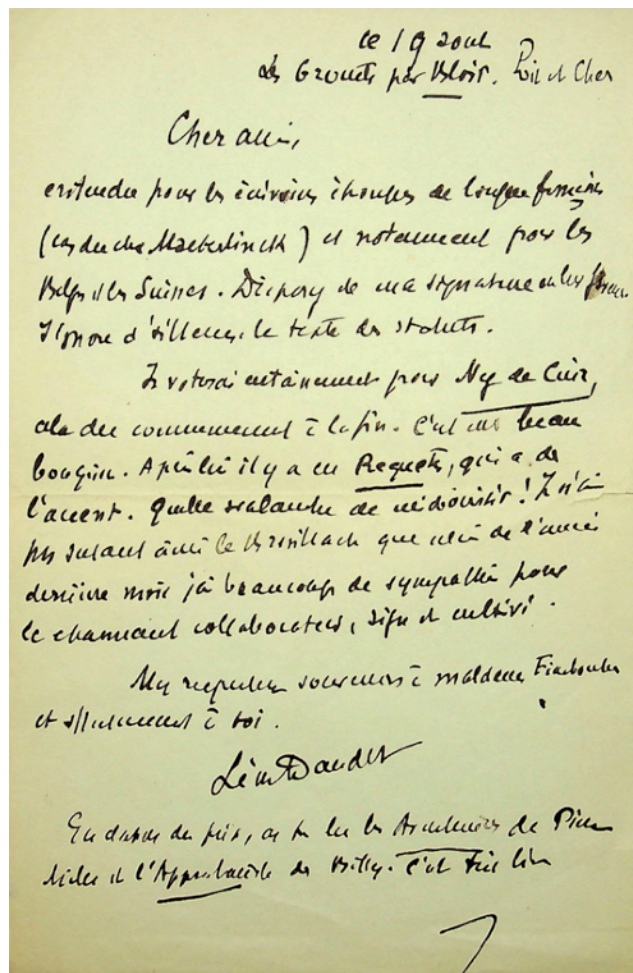 le 19 aout
Les Grouets par Blois. Loir et Cher
Cher ami,
entendu pour les écrivains étrangers de langue française
(cas du cher Maeterlinck) et notamment pour les
Belges et les Suisses. Disposez de ma signature en leur faveur.
J'ignore d'ailleurs le texte des statuts.
Je voterai certainement pour Nez de Cuir,
du commencement à la fin. C'est un beau
bouquin. Après lui il y a eu Requête, qui a de
l'accent. Quelle avalanche de médiocrités ! Je n'ai
pas autant aimé le Brasillach que celui de l'année
dernière mais j'ai beaucoup de sympathie pour
le charmant collaborateur, et cultivé.
Mes respectueux souvenirs à madame
et affectueusement à toi.
Léon Daudet
En dehors du prix, as tu lu les de Pierre
et l'Approbaniste de Billy. C'est très bien